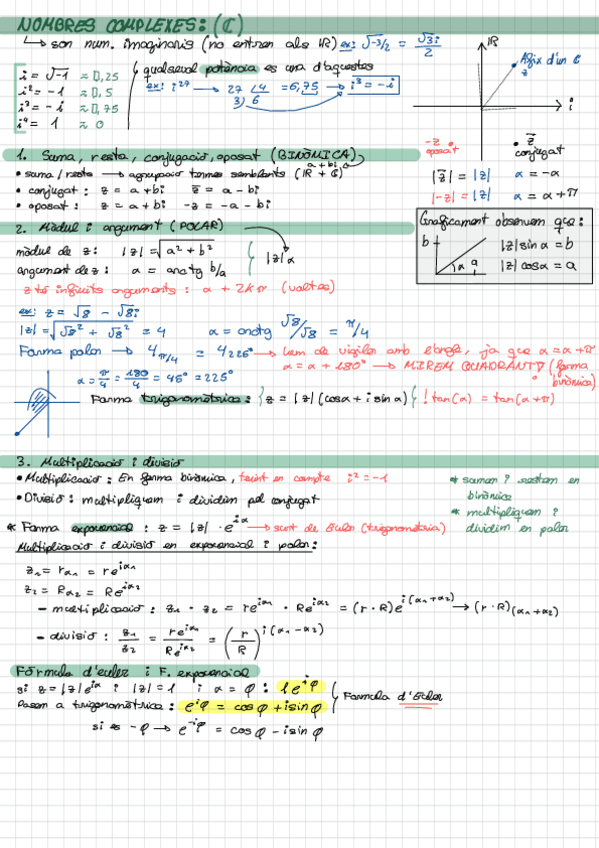 NOMBRES COMPLEXES: (ℂ)
↳ son num. imaginaris (no entren als ℝ) ex: √-3/2 = √3i/2
i = √-1 ≈ 0,25
i² = -1 ≈ 0,5
i³ = -i ≈ 0,75
i⁴ = 1 ≈ 0
qualsevol potència es una d'aquestes
ex: i²⁷ → 27 ∟4 = 6,75 → i³ = -i
3) 6
ℝ
Afix d'un ℂ
z
i
1. Suma, resta, conjugació, oposat (BINÒMICA)
a + bi
• suma/resta → agrupació termes semblants (ℝ + ℂ)
• conjugat: z = a + bi z̄ = a - bi
• oposat: z = a + bi -z = -a - bi
-z oposat
• z̄ conjugat
|z̄| = |z| α = -α
|-z| = |z| α = α + π
2. Mòdul i argument (POLAR)
mòdul de z: |z| = √a² + b²
argument de z: α = arctg b/a
|z|α
z té infinits arguments: α + 2kπ (voltes)
Gràficament observem que:
b
α a
|z| sin α = b
|z| cos α = a
ex: z = √8 - √8i
|z| = √√8² + √8² = 4 α = arctg √8/√8 = π/4
Forma polar → 4π/4 = 4225° → hem de vigilar amb l'angle, ja que α = α + π
α = α + 180° → MIREM QUADRANT! (forma binòmica)
α = π/4 = 180/4 = 45° = 225°
Forma trigonomètrica: { z = |z| (cos α + i sin α) { ! tan(α) = tan(α + π)
3. Multiplicació i divisió
• Multiplicació: En forma binòmica, tenint en compte i² = -1
• Divisió: multipliquem i dividim pel conjugat
* sumen i resten en binòmica
* multipliquem i dividim en polar
* Forma exponencial: z = |z| · e^iα → surt de Euler (trigonometria)
Multiplicació i divisió en exponencial i polar:
z₁ = rα₁ = re^iα₁
z₂ = Rα₂ = Re^iα₂
- multiplicació: z₁ · z₂ = re^iα₁ · Re^iα₂ = (r · R)e^i(α₁+α₂) → (r · R)(α₁+α₂)
- divisió: z₁/z₂ = re^iα₁/Re^iα₂ = (r/R)^i(α₁-α₂)
Fórmula d'euler i F. exponencial
si z = |z|e^iα i |z| = 1 i α = φ: 1e^iφ
Passem a trigonomètrica: e^iφ = cosφ + i sinφ
Formula d'Euler
si es -φ → e^-iφ = cosφ - i sinφ